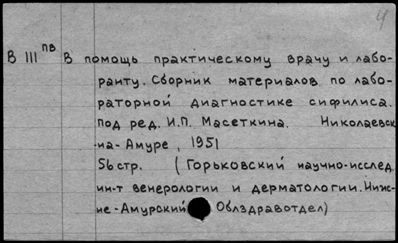 4
В III ПВ В помощь практическому врачу и лабо-
ранту. Сборник материалов по лабо-
раторной диагностике сифилиса.
под ред. И.П. Масеткина. Николаевск
-на-Амуре, 1951
56 стр. (Горьковский научно-исслед.
ин-т венерологии и дерматологии. Ниж-
не-Амурский Облздравотдел)